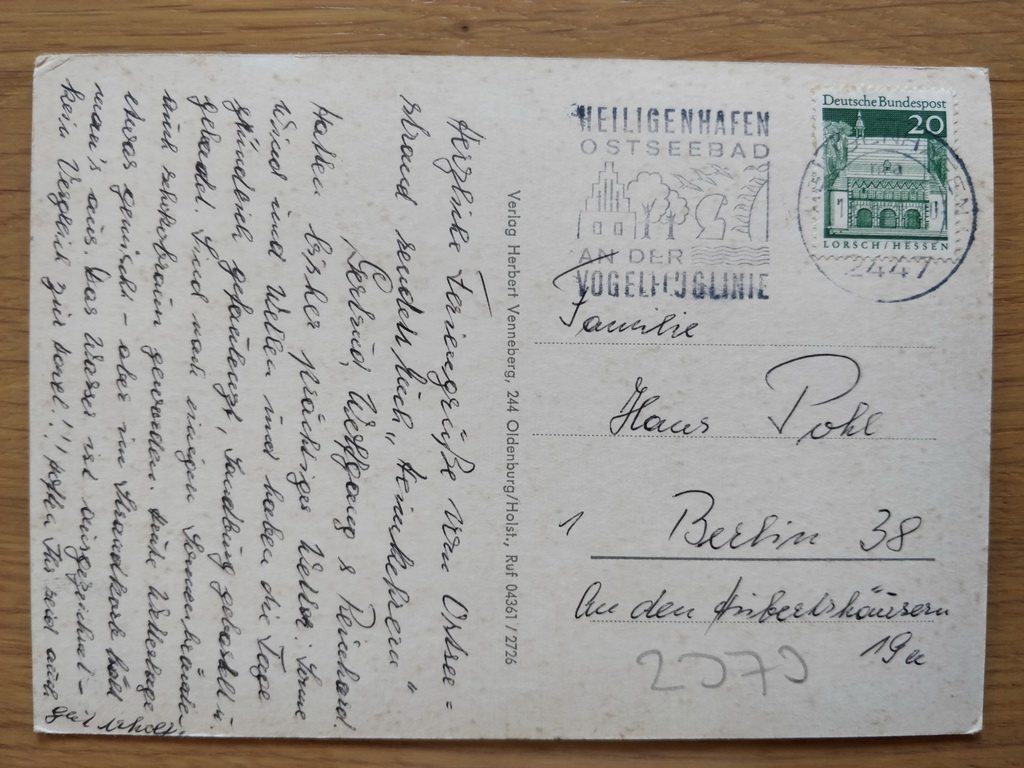 HEILIGENHAFEN
OSTSEEBAD
AN DER
VOGELFLUGLINIE
Deutsche Bundespost
20
LORSCH/HESSEN
2447
Familie
Hans Pohl
1 Berlin 38
An den
19a
2979
Verlag Herbert Venneberg, 244 Oldenburg/Holst., Ruf 04361 / 2726
Herzliche Feriengrüße vom Ostsee=
strand senden Euch
Gertrud, Wolfgang & Reinhard.
Hatten bisher prächtiges Wetter. Sonne
Wind und Wellen und haben die Tage
gründlich gefaulenzt, Sandburg gebastelt u.
gebadet. Sind nach einigen Sonnenbränden
auch schokobraun geworden. Heute Wetterlage
etwas gemischt - aber im Strandkorb hält
man's aus. Das Wasser ist ausgezeichnet -
kein Vergleich zur Havel!! Hoffen Ihr seid auch
gut erholt.